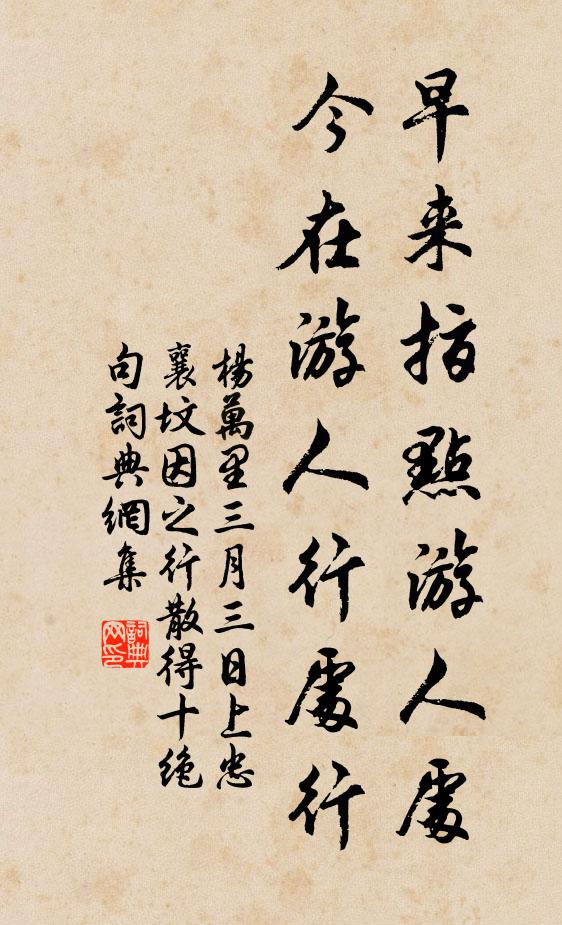 早来指點游人處
今在游人行處行
楊萬里三月三日上忠
襄坟因之行散得十绝
句詞典網集
詞典
网印